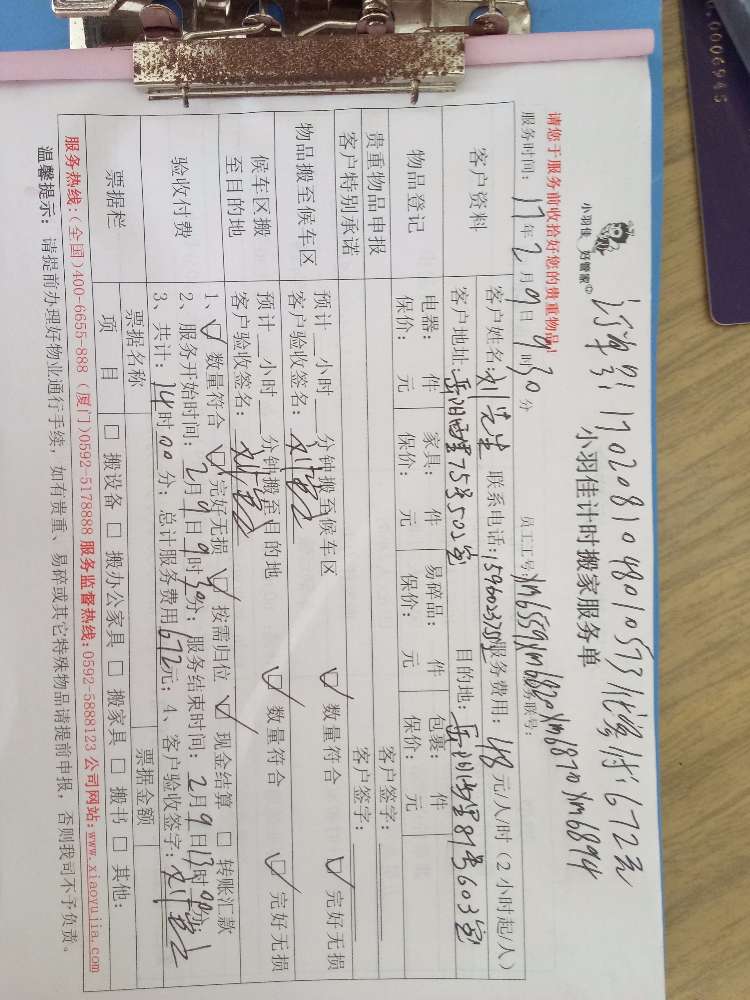 0006945
订单号 1702081048010573 代缴付: 672元
小羽佳 好管家
小羽佳计时搬家服务单
请您于服务前收拾好您的贵重物品!
服务时间: 17年2月9日9时30分 员工工号: xm6559 xm6880 xm6870 xm6894
客户资料 客户姓名: 刘先生 联系电话: 服务费用: 48元/人/时(2小时起/人)
客户地址: 岳阳西里75号505室 目的地: 岳阳西里81号603室
物品登记 电器: 件 家具: 件 易碎品: 件 包裹: 件
保价: 元 保价: 元 保价: 元 保价: 元
贵重物品申报 客户签字:
客户特别承诺 客户签字:
物品搬至候车区 预计__小时__分钟搬至候车区 ☑ 数量符合 ☑ 完好无损
客户验收签名:
候车区搬至目的地 预计__小时__分钟搬至目的地 ☑ 数量符合 ☑ 完好无损
客户验收签名:
验收付费 1、☑ 数量符合 ☑ 完好无损 ☑ 按需归位 ☑ 现金结算 □ 转账汇款
2、服务开始时间: 2月9日9时30分; 服务结束时间: 2月9日13时00分;
3、共计: 14时00分; 总计服务费用672元; 4、客户验收签字:
票据栏 票据名称 票据金额
项 目 □ 搬设备 □ 搬办公家具 □ 搬家具 □ 搬书 □ 其他:
服务热线:(全国)400-6655-888 (厦门)0592-5178888 服务监督热线:0592-5888123 公司网站:www.xiaoyujia.com
温馨提示: 请提前办理好物业通行手续, 如有贵重、易碎或其它特殊物品请提前申报, 否则我司不予负责。